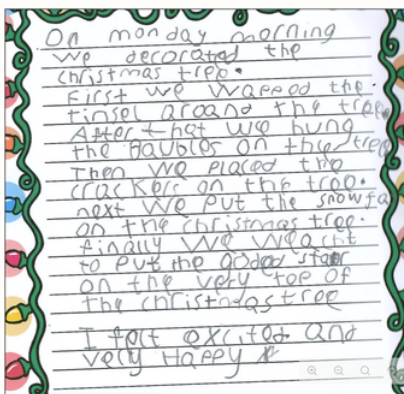 On monday morning
we decorated the
christmas tree.
First we wapped the
tinsel around the tree
After that we hung
the baubles on the tree
Then we placed the
crackers on the tree.
next we put the snowfa
on the christmas tree.
finally we
to put the star
on the very top of
the christmas tree
I felt excited and
very Happy